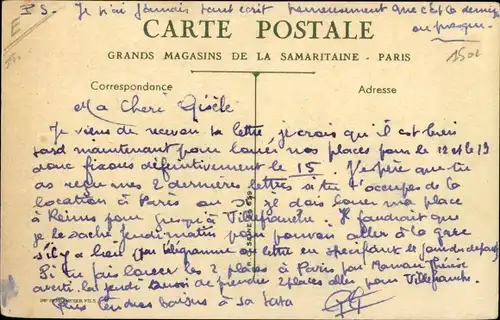 P.S. Je n'ai jamais tant écrit heureusement que c'est la dernière
ou presque.
E
CARTE POSTALE
GRANDS MAGASINS DE LA SAMARITAINE - PARIS
Correspondance
Adresse
Ma Cheri Gisèle
Je viens de recevoir ta lettre, je crois qu'il est bien
tard maintenant pour louer nos places pour le 12 et le 13
donc fixons définitivement le 15. J'espère que tu
as reçu mes 2 dernières lettres si tu t'occupes de la
location à Paris ou si je dois louer ma place
à Reims pour jusqu'à Villefranche. Il faudrait que
je le sache jeudi matin pour pouvoir aller à la gare
s'il y a bien par télégramme ou lettre en spécifiant le jour du départ
Si tu fais louer les 2 places à Paris par Maman Thérèse
averti-la jeudi aussi de prendre 2 places allés pour Villefranche.
Tendres baisers à sa tata